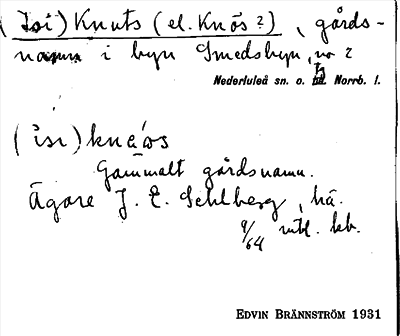 (Isi) Knuts (el. Knös?), gårds-
namn i byn Smedsbyn, no 2
Nederluleå sn. o. hd. Norrb. l.
(isi) knéøs
Gammalt gårdsnamn.
Ägare J. E. Sehlberg, hä.
9/64 mtl. kb.
EDVIN BRÄNNSTRÖM 1931